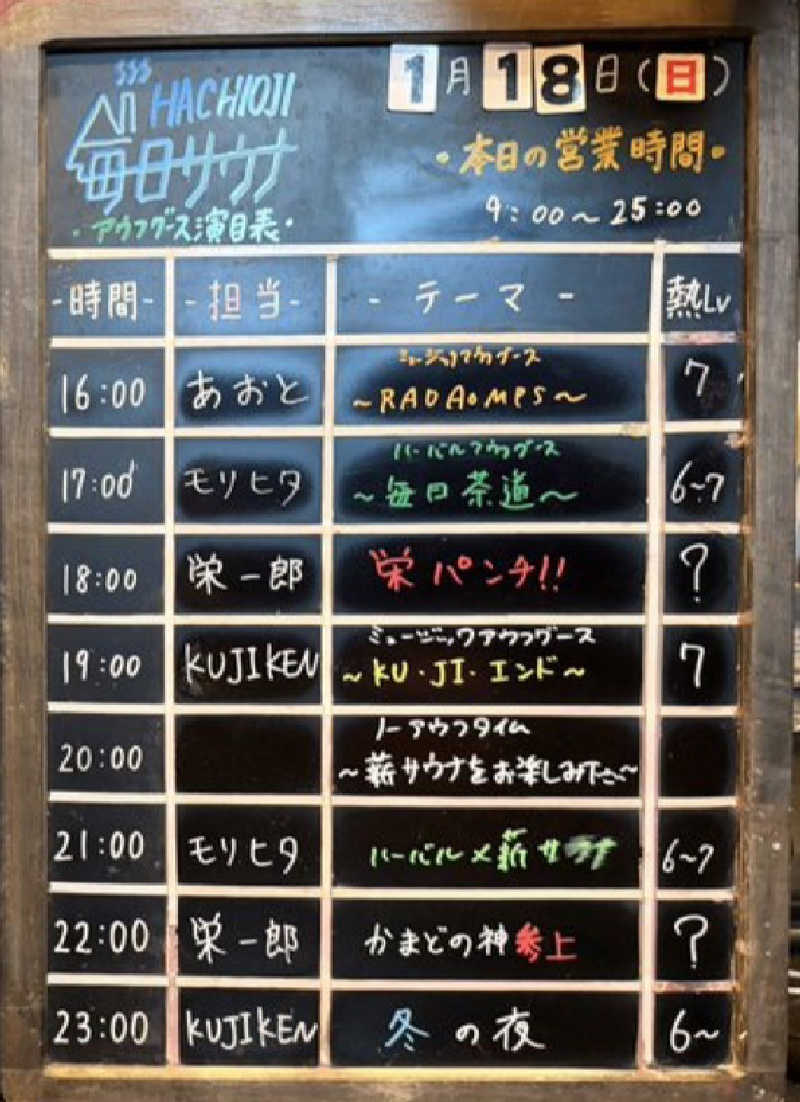 HACHIOJI
毎日サウナ
・アウフグース演目表・
1月18日(日)
・本日の営業時間・
9:00～25:00
-時間- -担当- - テーマ - 熱Lv
ミュージックアウフグース
16:00 あおと ～RADA○MPS～ 7
ハーバルアウフグース
17:00 モリヒタ ～毎日茶道～ 6~7
18:00 栄一郎 栄パンチ!! ?
ミュージックアウフグース
19:00 KUJIKEN ～KU・JI・エンド～ 7
ノーアウフタイム
20:00 ～薪サウナをお楽しみ下さい～
21:00 モリヒタ ハーバル×薪サウナ 6~7
22:00 栄一郎 かまどの神参上 ?
23:00 KUJIKEN 冬の夜 6~